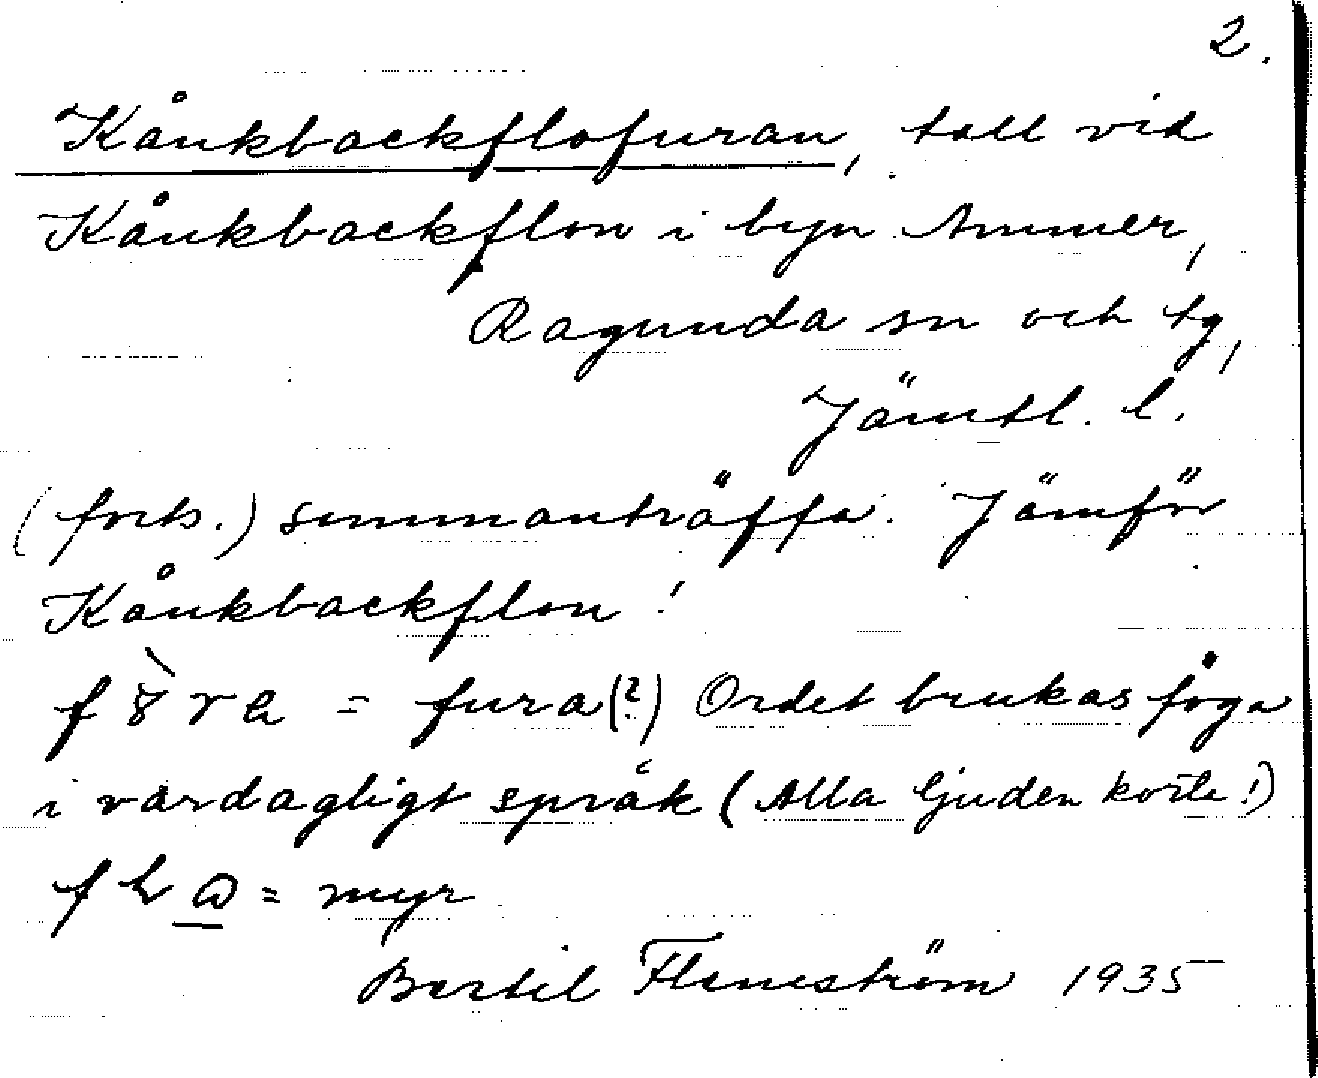 2.
Kånkbackflofuran, tall vid
Kånkbackflon i byn Ammer,
Ragunda sn och tg,
Jämtl. l.
(forts.) sammanträffa. Jämför
Kånkbackflon!
= fura(?) Ordet brukas föga
i vardagligt språk (Alla ljuden korta!)
= myr
Bertil Flemström 1935